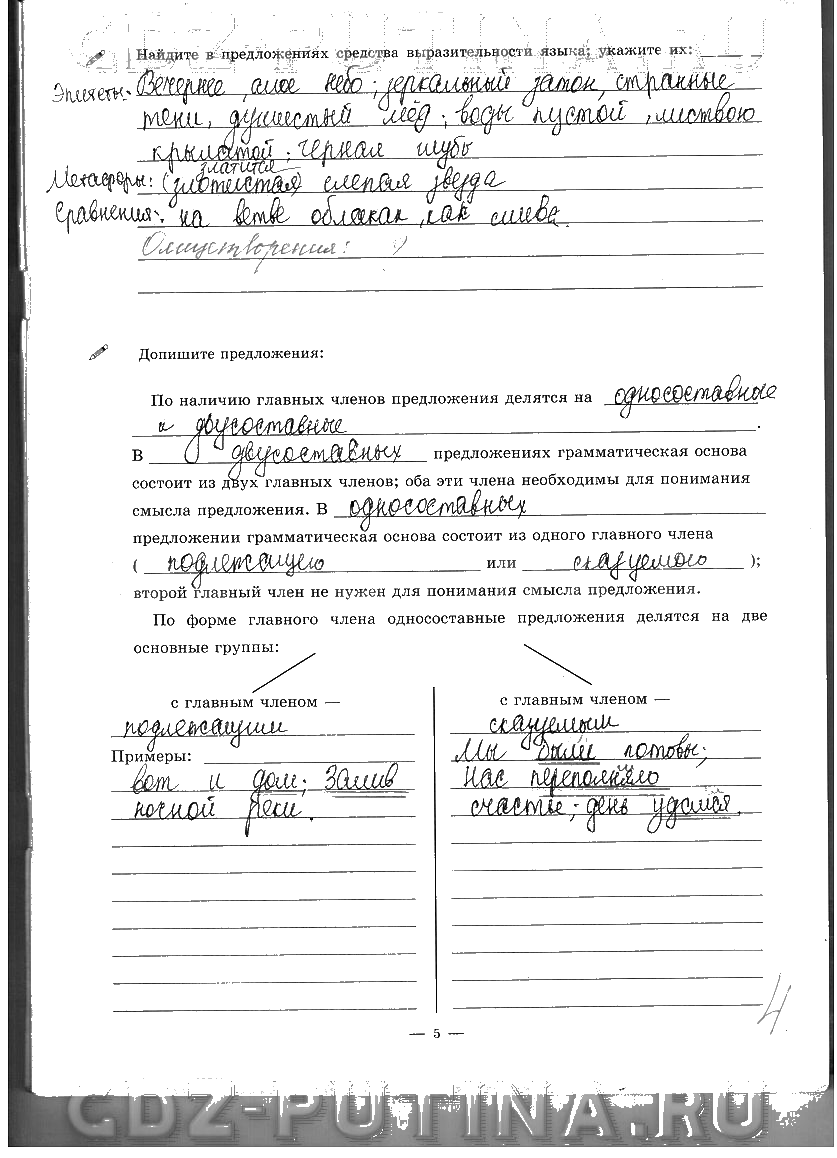 GDZ-PUTINA.RU
Найдите в предложениях средства выразительности языка; укажите их:
Эпитеты: Вечернее, алое небо; зеркальный затон, странные
тени, душистый мёд; воды пустой, листвою
крылатой; черная шубы
златится
Метафоры: (злотистая) слепая звезда
Сравнения: на ветве облакак, как слива.
Олицетворения:
Допишите предложения:
По наличию главных членов предложения делятся на односоставные
и двусоставные.
В двусоставных предложениях грамматическая основа
состоит из двух главных членов; оба эти члена необходимы для понимания
смысла предложения. В односоставных
предложении грамматическая основа состоит из одного главного члена
( подлежащего или сказуемого );
второй главный член не нужен для понимания смысла предложения.
По форме главного члена односоставные предложения делятся на две
основные группы:
с главным членом —
подлежащим
Примеры:
вот и дом; Залив
ночной реки.
с главным членом —
сказуемым
Мы были готовы;
Нас переполняло
счастье; день удался.
4
— 5 —
GDZ-PUTINA.RU